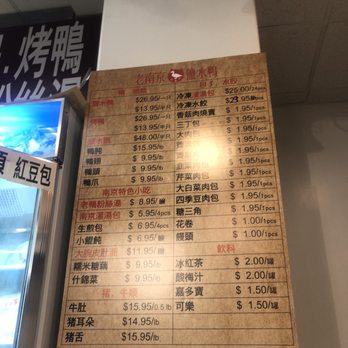 烤鴨
粉絲湯
頁 紅豆包
老南京 鹽水鴨
$26.95/一只
$13.95/半只
烤鴨 $26.95/一只
$13.95/半只
$48.00/一只
鴨肫 $15.95/lb
鴨翅 $ 9.95/lb
鴨頭 $ 9.95/lb
鴨爪 $ 9.95/lb
南京特色小吃
老鴨粉絲湯 $ 8.95/碗
南京灌湯包 $ 5.95/4pcs
生煎包 $ 5.95/4pcs
小餛飩 $ 6.95/碗
$11.95/碗
糯米糖藕 $ 9.95/lb
什錦菜 $ 9.95/lb
牛肚 $15.95/0.5 lb
豬耳朵 $14.95/lb
豬舌 $15.95/lb
水餃
冷凍灌湯包 $25.00/
冷凍水餃 $23.95/
香菇肉燒賣 $ 1.95/1pcs
三丁包 $ 1.95/1pcs
大肉包 $ 1.95/1pcs
$ 1.95/1pcs
$ 1.95/1pcs
芹菜肉包 $ 1.95/1pcs
大白菜肉包 $ 1.95/1pcs
四季豆肉包 $ 1.95/1pcs
糖三角 $ 1.95/1pcs
花卷 $ 1.00/1pcs
饅頭 $ 1.00/1pcs
飲料
冰紅茶 $ 2.00/罐
酸梅汁 $ 2.00/罐
嘉多寶 $ 1.50/罐
可樂 $ 1.50/罐